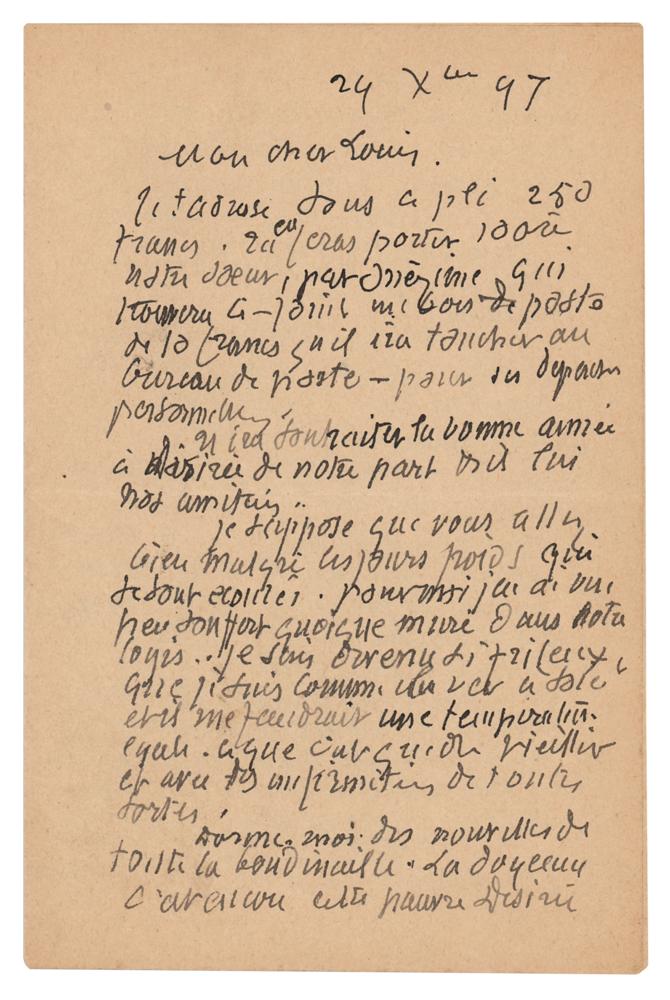 29 Xbre 97
Mon cher Louis.
Je t'adresse sous ce pli 250
francs. Tu en feras porter 100 à
notre soeur, par Onézime qui
trouvera ci-joint un bon de poste
de 10 francs qu'il ira toucher au
bureau de poste - pour ses dépenses
personnelles.
Il ira souhaiter la bonne année
à Désirée de notre part
nos amitiés..
je suppose que vous allez
bien malgré les jours froids qui
se sont écoulés. pour moi j'ai un
peu souffert quoique muré dans notre
logis.. je suis devenu si frileux,
que je suis comme un ver à soie
et il me faudrait une température
égale. ce que c'est que de vieillir
et avec des infirmités de toutes
sortes.
Donne-moi des nouvelles de
toute la boudinaille. La doyenne
c'est encore cette pauvre Désirée